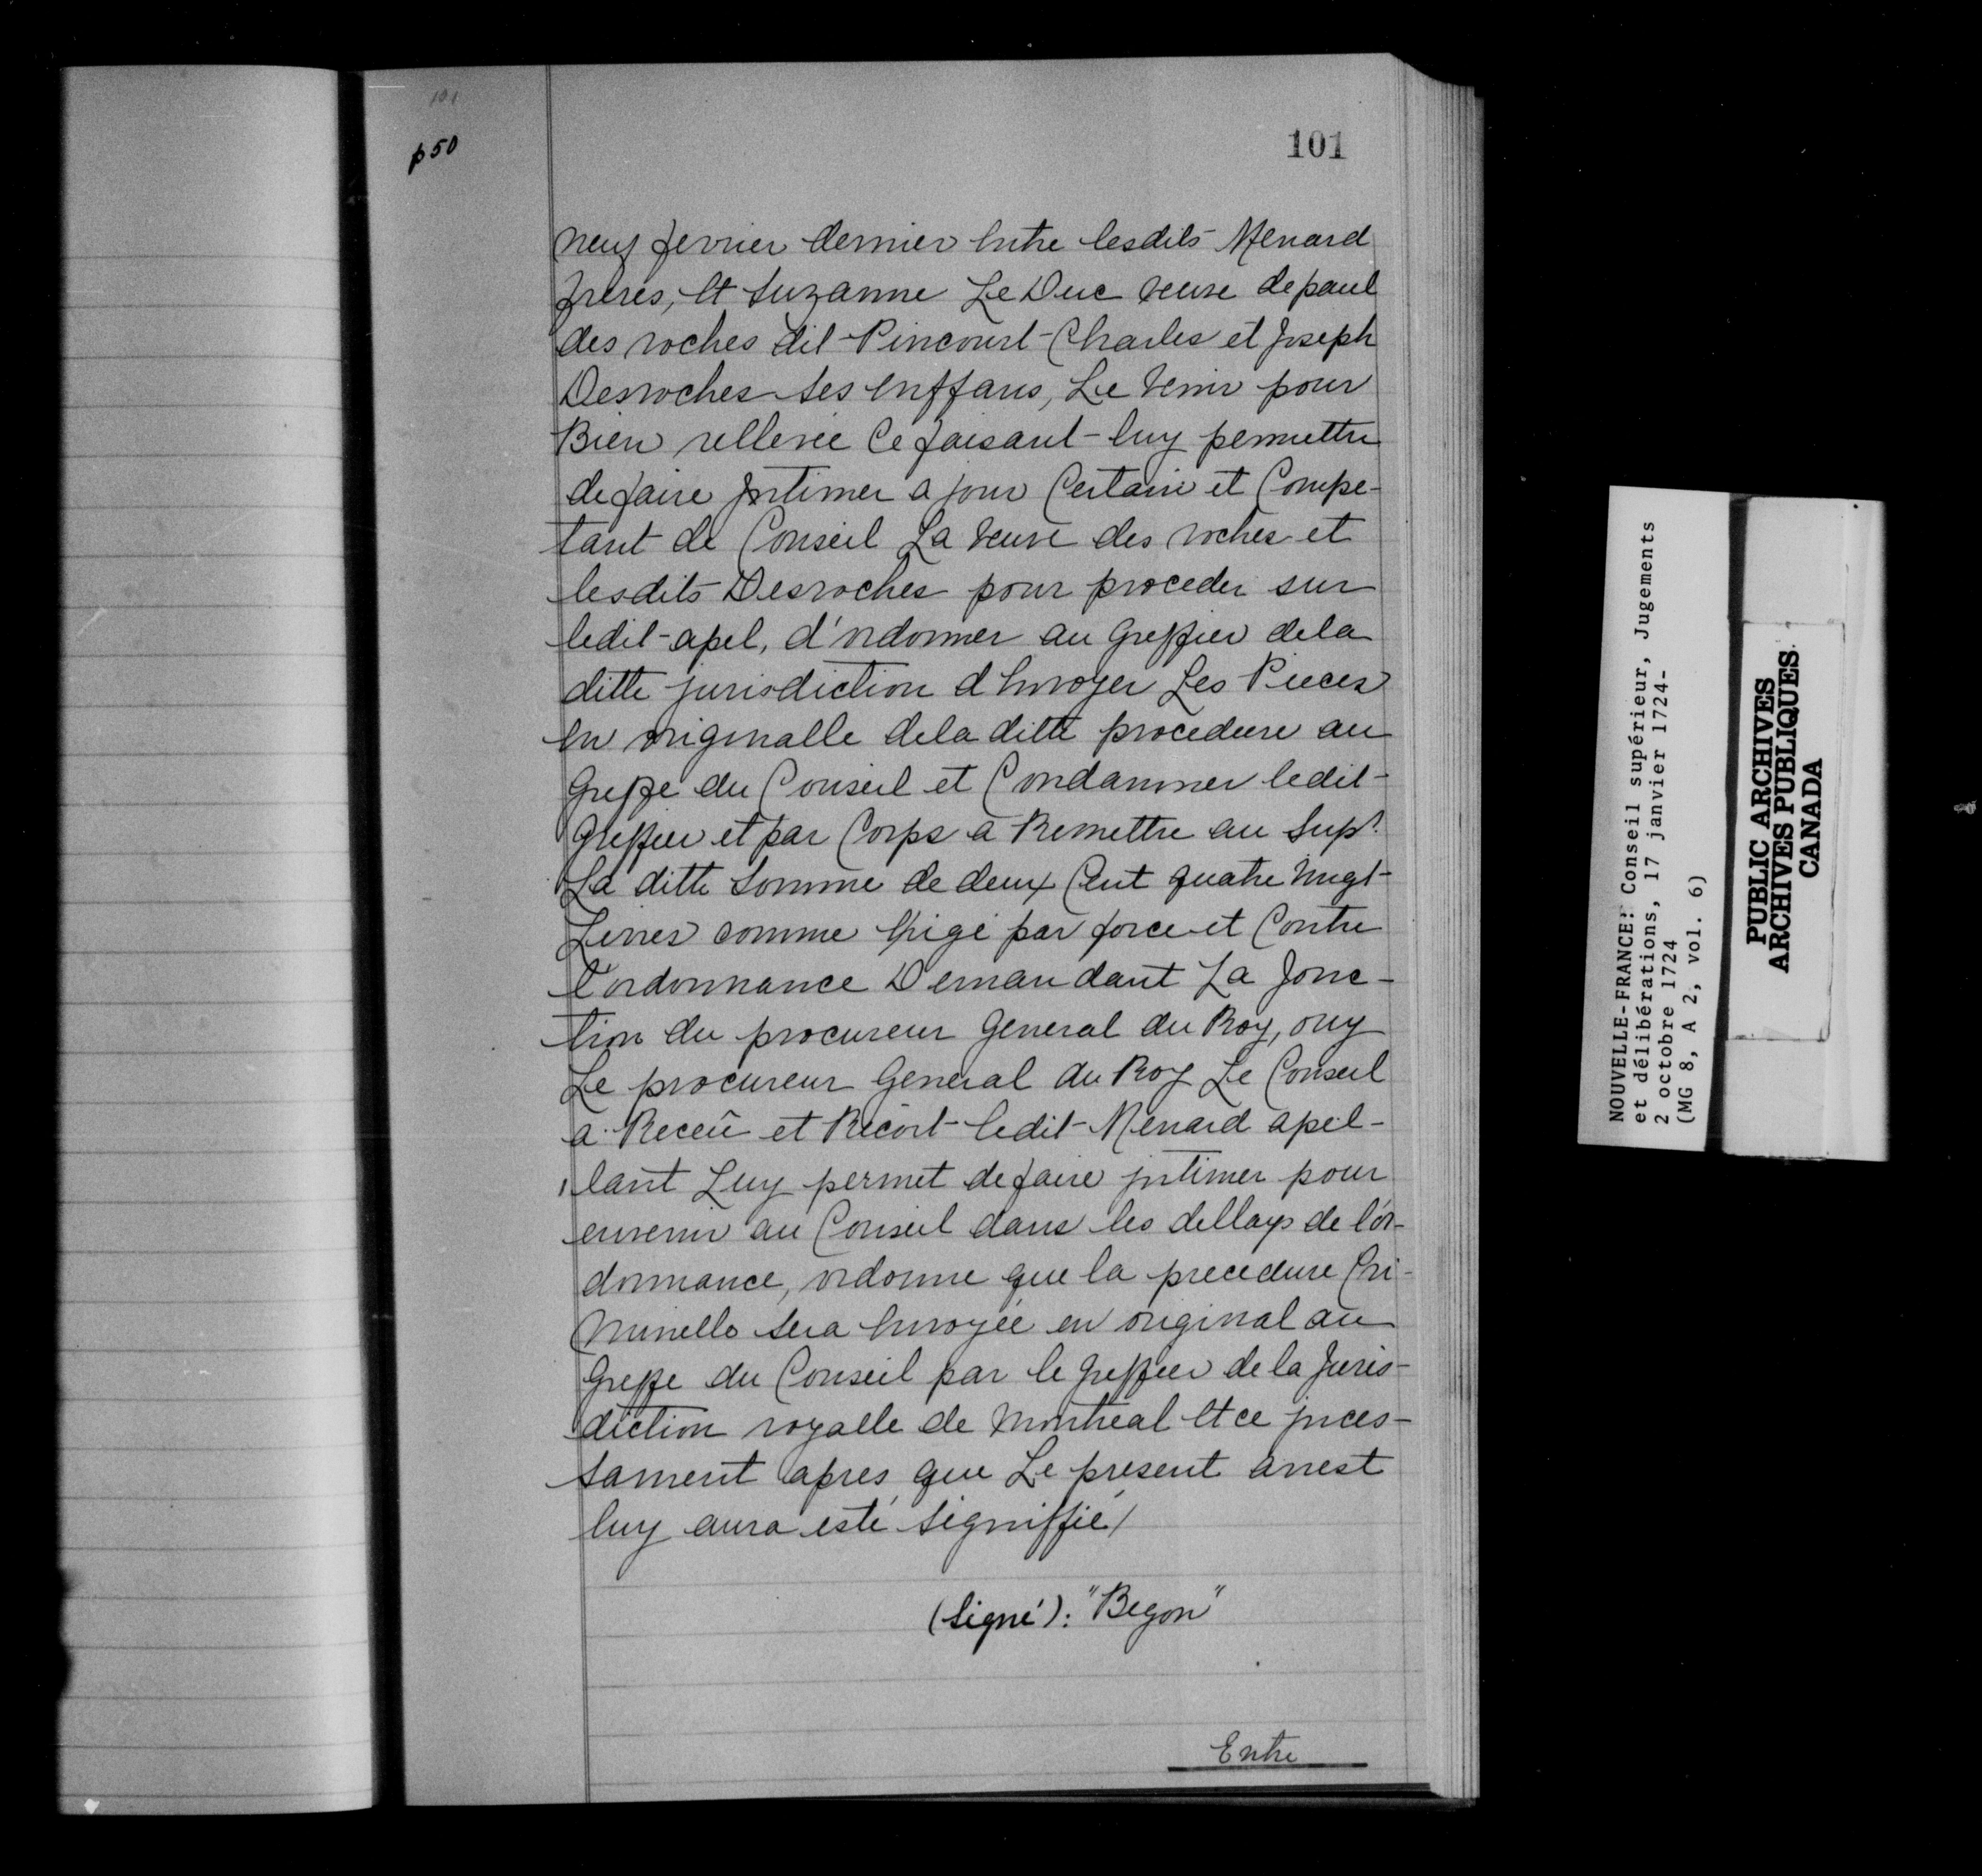 101
p 50
101
neuf fevrier dernier Entre lesdits Menard
freres, Et Suzanne Le Duc veuve de paul
des roches dit Pincourt Charles et Joseph
Desroches ses Enffans, Le tenir pour
Bien rellevée Ce faisant luy permettre
de faire Jntimer a jour Certain et Compe-
tant de Conseil La veuve des roches et
lesdits Desroches pour proceder sur
ledit apel, d'ordonner au Greffier de la
ditte jurisdiction d Envoyer Les Pieces
En originalle de la ditte procedure au
Greffe du Conseil et Condamner ledit
Greffier et par Corps a Remettre au Supt.
La ditte Somme de deux Cent quatre vingt
Livres comme Exigé par force et Contre
L'ordonnance Demandant La Jonc-
tion du procureur General du Roy, ouy
Le procureur General du Roy Le Conseil
a Receû et Recoit ledit Menard apel-
lant Luy permet de faire jntimer pour
envenir au Conseil dans les dellays de l'or-
donnance, ordonne que la precedure Cri-
minelle sera Envoyée en original au
Greffe du Conseil par le Greffier de la Juris-
diction royalle de Montreal Et ce jnces-
sament apres que Le present arrest
luy aura esté signiffié/
(Signé): "Begon"
Entre
NOUVELLE-FRANCE: Conseil supérieur, Jugements
et délibérations, 17 janvier 1724-
2 octobre 1724
(MG 8, A 2, vol. 6)
PUBLIC ARCHIVES
ARCHIVES PUBLIQUES
CANADA